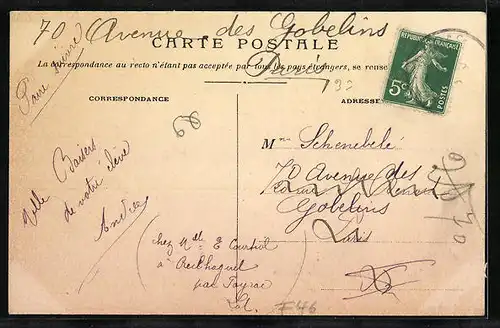 70 Avenue des Gobelins
CARTE POSTALE
La correspondance au recto n'étant pas acceptée par tous les pays étrangers, se
Paris
REPUBLIQUE FRANÇAISE
5c
POSTES
CORRESPONDANCE
ADRESSE
Faire suivre
68
Mille Baisers
de votre élève
Andrée
Mme Schenebelé
70 Avenue des
Gobelins
Paris
chez Mlle E
à
par Payrac
Lot